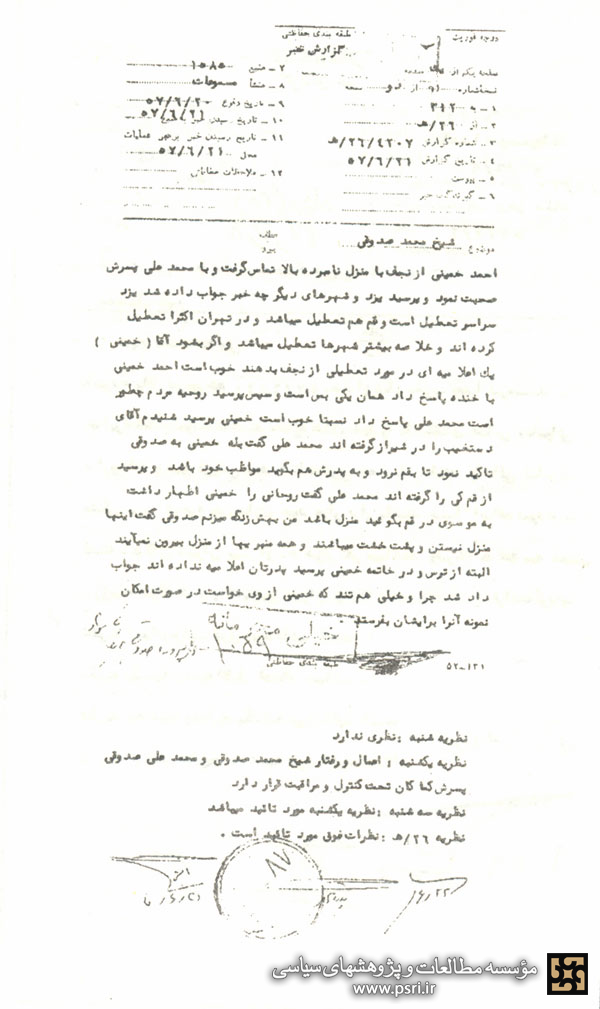 درجه فوریت
طبقه بندی حفاظتی
گزارش خبر
صفحه یکم از
نسخه شماره از دو
۱ - به ۳۱۲
۲ - از ۲۶/هـ
۳ - شماره گزارش ۲۶/۴۲۰۷/هـ
۴ - تاریخ گزارش ۵۷/۶/۲۱
۵ - پیوست
۶ - گیرندگان خبر
۷ - منبع ۱۰۸۵
۸ - منشأ مسموعات
۹ - تاریخ وقوع ۵۷/۶/۲۰
۱۰ - تاریخ رسیدن خبر بمنبع ۵۷/۶/۲۱
۱۱ - تاریخ رسیدن خبر برهبر عملیات
محل ۵۷/۶/۲۱
۱۲ - ملاحظات حفاظتی
عطف
پیرو
موضوع شیخ محمد صدوقی
احمد خمینی از نجف با منزل نامبرده بالا تماس گرفت و با محمد علی پسرش
صحبت نمود و پرسید یزد و شهرهای دیگر چه خبر جواب داده شد یزد
سراسر تعطیل است و قم هم تعطیل میباشد و در تهران اکثرا تعطیل
کرده اند و خلاصه بیشتر شهرها تعطیل میباشد و اگر بشود آقا ( خمینی )
یك اعلامیه ای در مورد تعطیلی از نجف بدهند خوب است احمد خمینی
با خنده پاسخ داد همان یکی بس است و سپس پرسید روحیه مردم چطور
است محمد علی پاسخ داد نسبتا خوب است خمینی پرسید شنیدم آقای
دستغیب را در شیراز گرفته اند محمد علی گفت بله خمینی به صدوقی
تاکید نمود تا بقم نرود و به پدرش هم بگوید مواظب خود باشد و پرسید
از قم کی را گرفته اند محمد علی گفت روحانی را خمینی اظهار داشت
به موسوی در قم بگوئید منزل باشد من بهش زنگ میزنم صدوقی گفت اینها
منزل نیستن و پشت خشت میباشند و همه منبریها از منزل بیرون نمیآیند
البته از ترس و در خاتمه خمینی پرسید پدرتان اعلامیه نداده اند جواب
داد شد چرا و خیلی هم تند که خمینی از وی خواست در صورت امکان
نمونه آنرا برایشان بفرستد .
خیلی محرمانه
طبقه بندی حفاظتی
۵۲-۱۳۱
نظریه شنبه : نظری ندارد
نظریه یکشنبه : اعمال و رفتار شیخ محمد صدوقی و محمد علی صدوقی
پسرش کماکان تحت کنترل و مراقبت قرار دارد
نظریه سه شنبه : نظریه یکشنبه مورد تائید میباشد
نظریه ۲۶/هـ : نظرات فوق مورد تائید است .
۸۷
مؤسسه مطالعات و پژوهشهای سیاسی
www.psri.ir